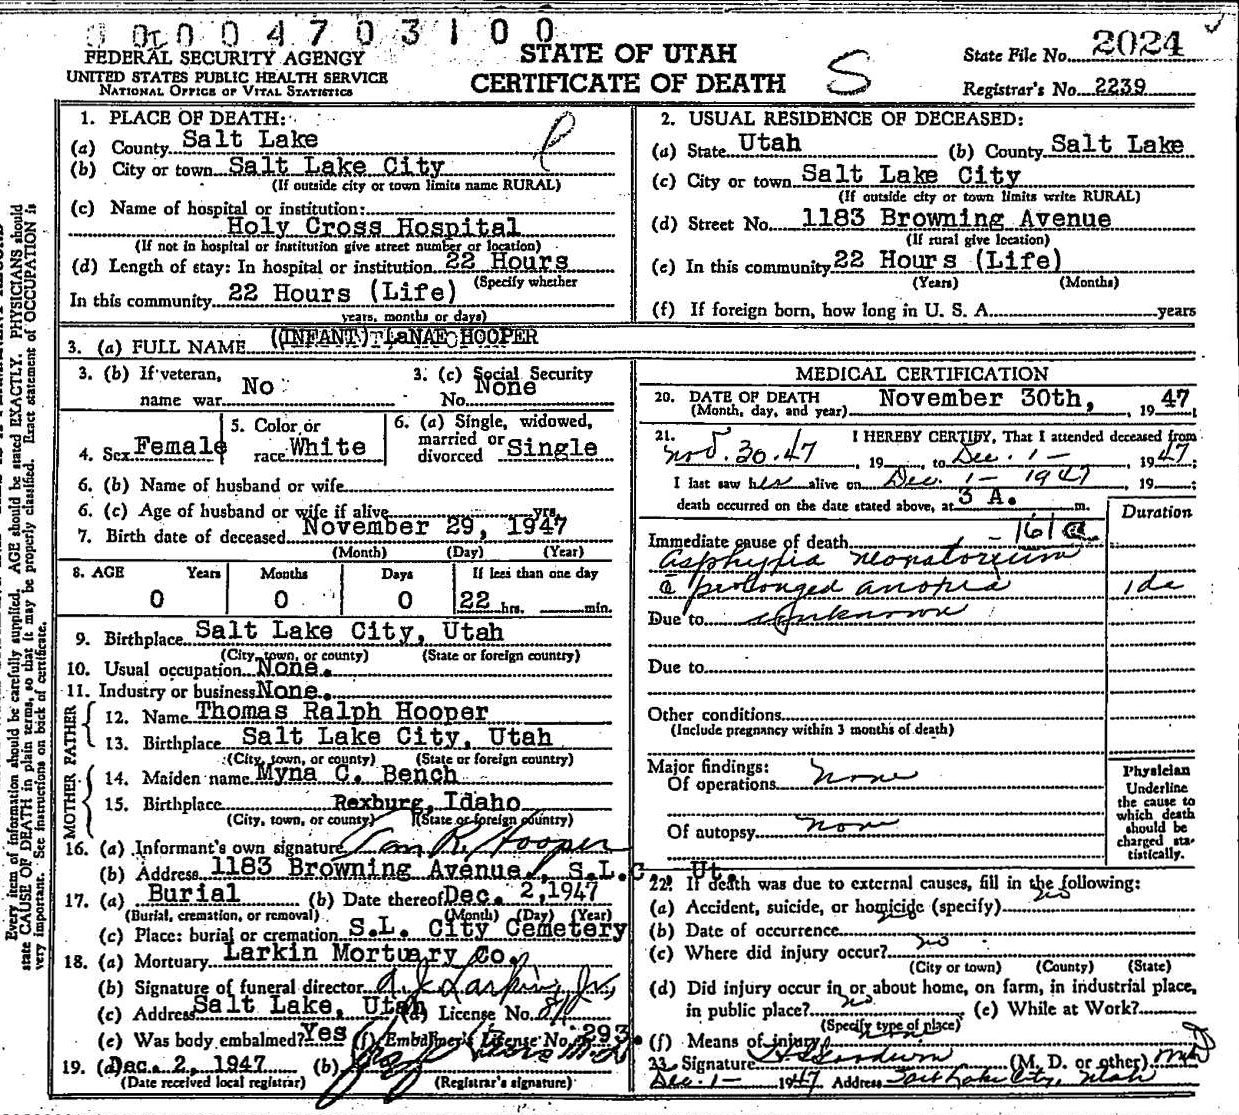 0 0 0 0 4 7 0 3 1 0 0
FEDERAL SECURITY AGENCY
UNITED STATES PUBLIC HEALTH SERVICE
NATIONAL OFFICE OF VITAL STATISTICS
STATE OF UTAH
CERTIFICATE OF DEATH
S
State File No. 2024
Registrar's No. 2239
1. PLACE OF DEATH:
(a) County Salt Lake
(b) City or town Salt Lake City
(If outside city or town limits name RURAL)
(c) Name of hospital or institution:
Holy Cross Hospital
(If not in hospital or institution give street number or location)
(d) Length of stay: In hospital or institution 22 Hours
(Specify whether
In this community 22 Hours (Life)
years, months or days)
2. USUAL RESIDENCE OF DECEASED:
(a) State Utah (b) County Salt Lake
(c) City or town Salt Lake City
(If outside city or town limits write RURAL)
(d) Street No. 1183 Browning Avenue
(If rural give location)
(e) In this community 22 Hours (Life)
(Years) (Months)
(f) If foreign born, how long in U. S. A. years
3. (a) FULL NAME (INFANT) LaNAE HOOPER
3. (b) If veteran, name war No
3. (c) Social Security No. None
4. Sex Female
5. Color or race White
6. (a) Single, widowed, married or divorced Single
6. (b) Name of husband or wife
6. (c) Age of husband or wife if alive yrs.
7. Birth date of deceased November 29, 1947
(Month) (Day) (Year)
8. AGE Years Months Days If less than one day
0 0 0 22 hrs. min.
9. Birthplace Salt Lake City, Utah
(City, town, or county) (State or foreign country)
10. Usual occupation None.
11. Industry or business None.
FATHER
12. Name Thomas Ralph Hooper
13. Birthplace Salt Lake City, Utah
(City, town, or county) (State or foreign country)
MOTHER
14. Maiden name Myna C. Bench
15. Birthplace Rexburg, Idaho
(City, town, or county) (State or foreign country)
16. (a) Informant's own signature Tom R. Hooper
(b) Address 1183 Browning Avenue, S.L.C., Ut.
17. (a) Burial (b) Date thereof Dec. 2, 1947
(Burial, cremation, or removal) (Month) (Day) (Year)
(c) Place: burial or cremation S.L. City Cemetery
18. (a) Mortuary Larkin Mortuary Co.
(b) Signature of funeral director A J Larkin Jr.
(c) Address Salt Lake, Utah (d) License No.
(e) Was body embalmed? Yes (f) Embalmer's License No. 293.
19. (a) Dec. 2, 1947 (b)
(Date received local registrar) (Registrar's signature)
MEDICAL CERTIFICATION
20. DATE OF DEATH
(Month, day, and year) November 30th, , 19 47;
21. I HEREBY CERTIFY, That I attended deceased from
Nov. 30. 47 , 19 , to Dec. 1- 19 47
I last saw her alive on Dec. 1- 1947 , 19 ;
death occurred on the date stated above, at 3 A. m.
Duration
161
Immediate cause of death
asphyxia neonatorium
prolonged anoxia 1 da
Due to unknown
Due to
Other conditions
(Include pregnancy within 3 months of death)
Major findings:
Of operations none
Of autopsy none
Physician
Underline
the cause to
which death
should be
charged sta-
tistically.
22. If death was due to external causes, fill in the following:
(a) Accident, suicide, or homicide (specify) no
(b) Date of occurrence
(c) Where did injury occur? no
(City or town) (County) (State)
(d) Did injury occur in or about home, on farm, in industrial place,
in public place? no (e) While at Work?
(Specify type of place)
(f) Means of injury
23. Signature (M. D. or other) MD
Dec. 1- 1947 Address Salt Lake City, Utah
Every item of information should be carefully supplied. AGE should be stated EXACTLY. PHYSICIANS should
state CAUSE OF DEATH in plain terms, so that it may be properly classified. Exact statement of OCCUPATION is
very important. See instructions on back of certificate.